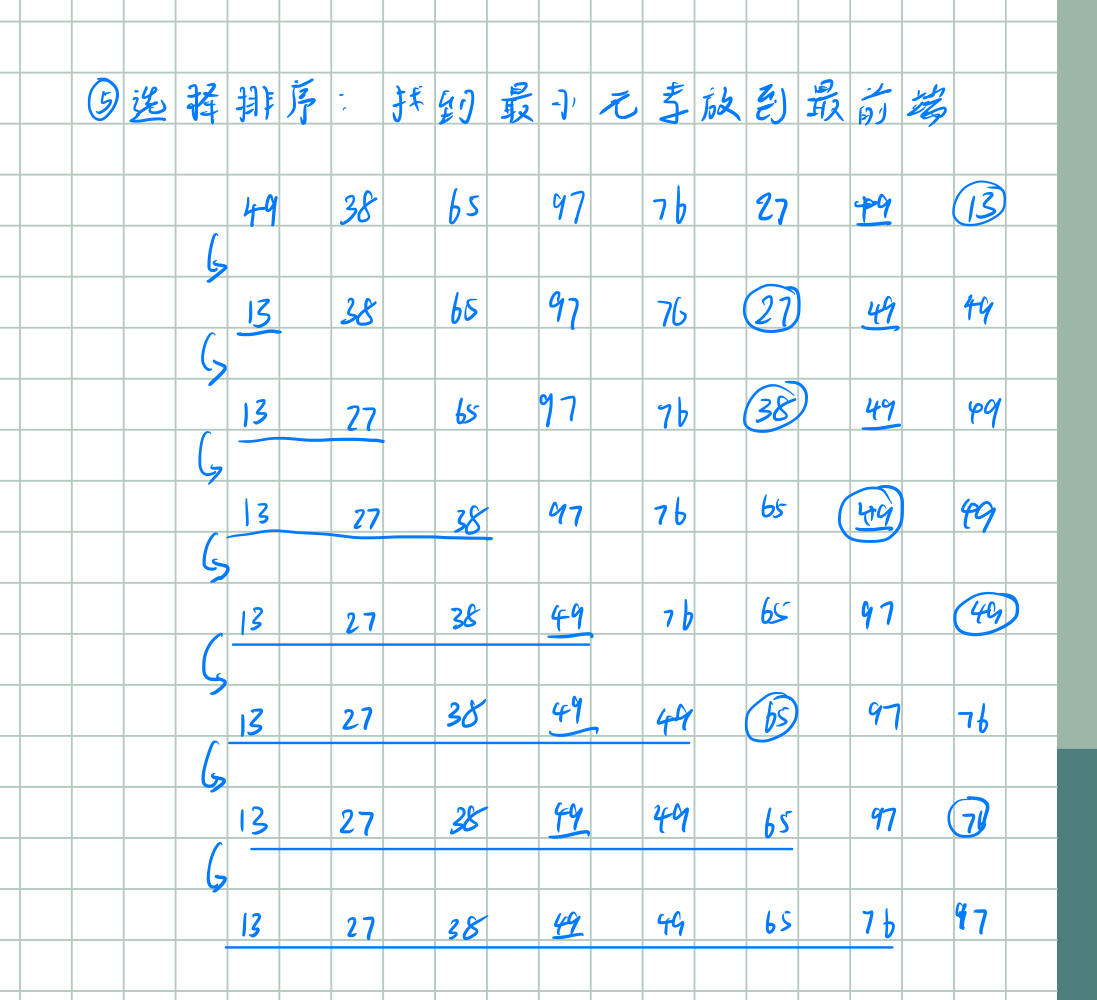 ⑤选择排序：找到最小元素放到最前端
49 38 65 97 76 27 49 13
13 38 65 97 76 27 49 49
13 27 65 97 76 38 49 49
13 27 38 97 76 65 49 49
13 27 38 49 76 65 97 49
13 27 38 49 49 65 97 76
13 27 38 49 49 65 97 76
13 27 38 49 49 65 76 97